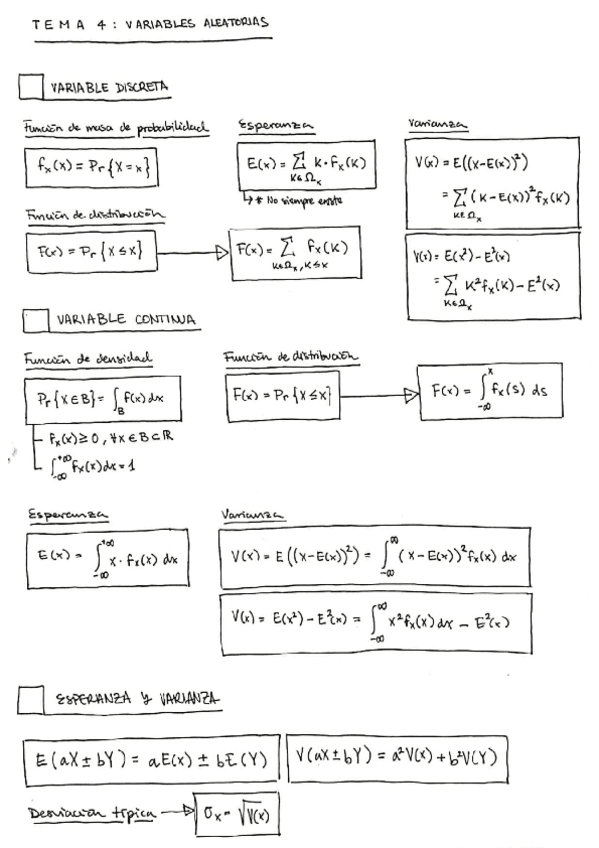 TEMA 4: VARIABLES ALEATORIAS
VARIABLE DISCRETA
Función de masa de probabilidad
f_x(x) = Pr{X=x}
Esperanza
E(x) = ∑_{K∈Ω_x} K·f_x(K)
↳ * No siempre existe
Varianza
V(x) = E((x-E(x))²)
= ∑_{K∈Ω_x} (K-E(x))² f_x(K)
V(x) = E(x²)-E²(x)
= ∑_{K∈Ω_x} K² f_x(K) - E²(x)
Función de distribución
F(x) = Pr{X≤x}
F(x) = ∑_{K∈Ω_x, K≤x} f_x(K)
VARIABLE CONTINUA
Función de densidad
Pr{X∈B} = ∫_B f(x)dx
f_x(x) ≥ 0, ∀x∈B⊂ℝ
∫_{-∞}^{+∞} f_x(x)dx = 1
Función de distribución
F(x) = Pr{X≤x}
F(x) = ∫_{-∞}^{x} f_x(s) ds
Esperanza
E(x) = ∫_{-∞}^{+∞} x·f_x(x) dx
Varianza
V(x) = E((x-E(x))²) = ∫_{-∞}^{∞} (x-E(x))² f_x(x) dx
V(x) = E(x²)-E²(x) = ∫_{-∞}^{∞} x² f_x(x) dx - E²(x)
ESPERANZA Y VARIANZA
E(aX±bY) = aE(x) ± bE(Y)
V(aX±bY) = a²V(x)+b²V(Y)
Desviación típica
σ_x = √V(x)